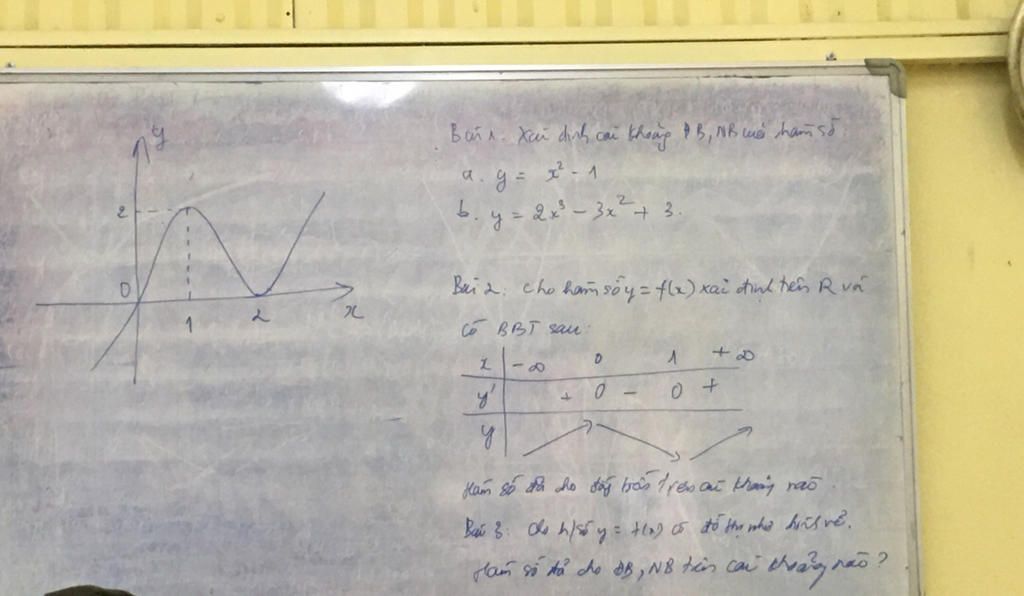 y
2
0
1
2
x
Bài 1. Xác định các khoảng ĐB, NB của hàm số:
a. y = x² - 1
b. y = 2x³ - 3x² + 3.
Bài 2: Cho hàm số y = f(x) xác định trên R và
có BBT sau:
x -∞ 0 1 +∞
y' + 0 - 0 +
y
Hàm số đã cho trên các khoảng nào.
Bài 3: Cho h/số y = f(x) có đồ thị như hình vẽ.
Hàm số đã cho ĐB, NB trên các khoảng nào?